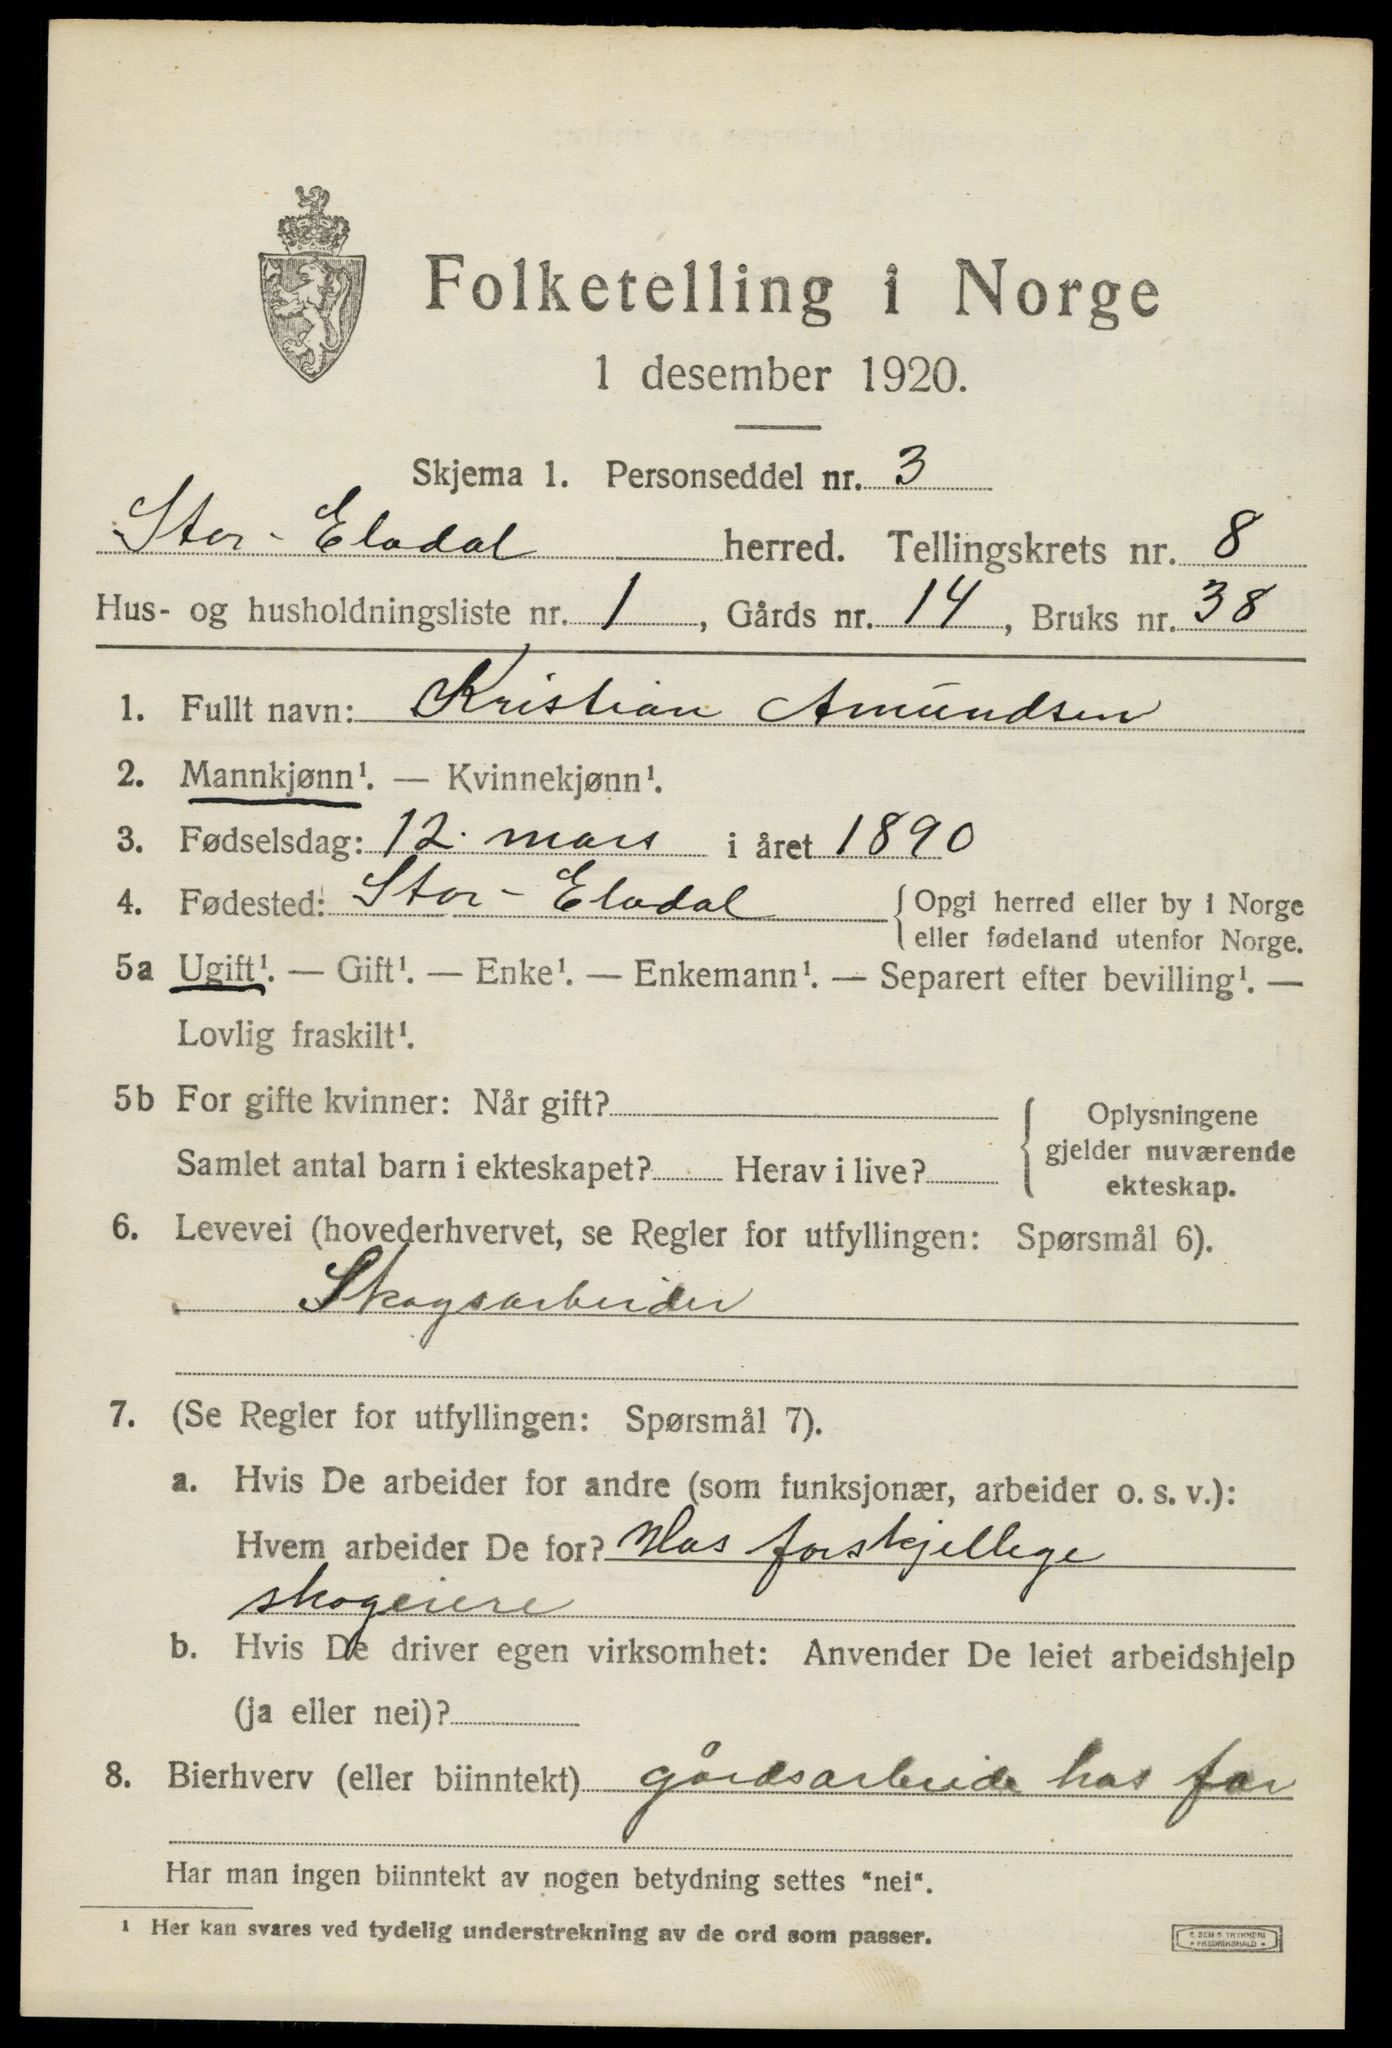 Folketelling i Norge
1 desember 1920.
Skjema 1. Personseddel nr. 3
Stor-Elvdal herred. Tellingskrets nr. 8
Hus- og husholdningsliste nr. 1, Gårds nr. 14, Bruks nr. 38
1. Fullt navn: Kristian Amundsen
2. Mannkjønn¹. — Kvinnekjønn¹.
3. Fødselsdag: 12. mars i året 1890
4. Fødested: Stor-Elvdal { Opgi herred eller by i Norge
eller fødeland utenfor Norge.
5a Ugift¹. — Gift¹. — Enke¹. — Enkemann¹. — Separert efter bevilling¹. —
Lovlig fraskilt¹.
5b For gifte kvinner: Når gift?
Samlet antal barn i ekteskapet? Herav i live?
{ Oplysningene
gjelder nuværende
ekteskap.
6. Levevei (hovederhvervet, se Regler for utfyllingen: Spørsmål 6).
Skogsarbeider
7. (Se Regler for utfyllingen: Spørsmål 7).
a. Hvis De arbeider for andre (som funksjonær, arbeider o. s. v.):
Hvem arbeider De for? Hos forskjellege
skogeiere
b. Hvis De driver egen virksomhet: Anvender De leiet arbeidshjelp
(ja eller nei)?
8. Bierhverv (eller biinntekt) gårdsarbeide hos far
Har man ingen biinntekt av nogen betydning settes "nei".
¹ Her kan svares ved tydelig understrekning av de ord som passer.
E. SEM'S TRYKKERI
• FREDRIKSHALD •